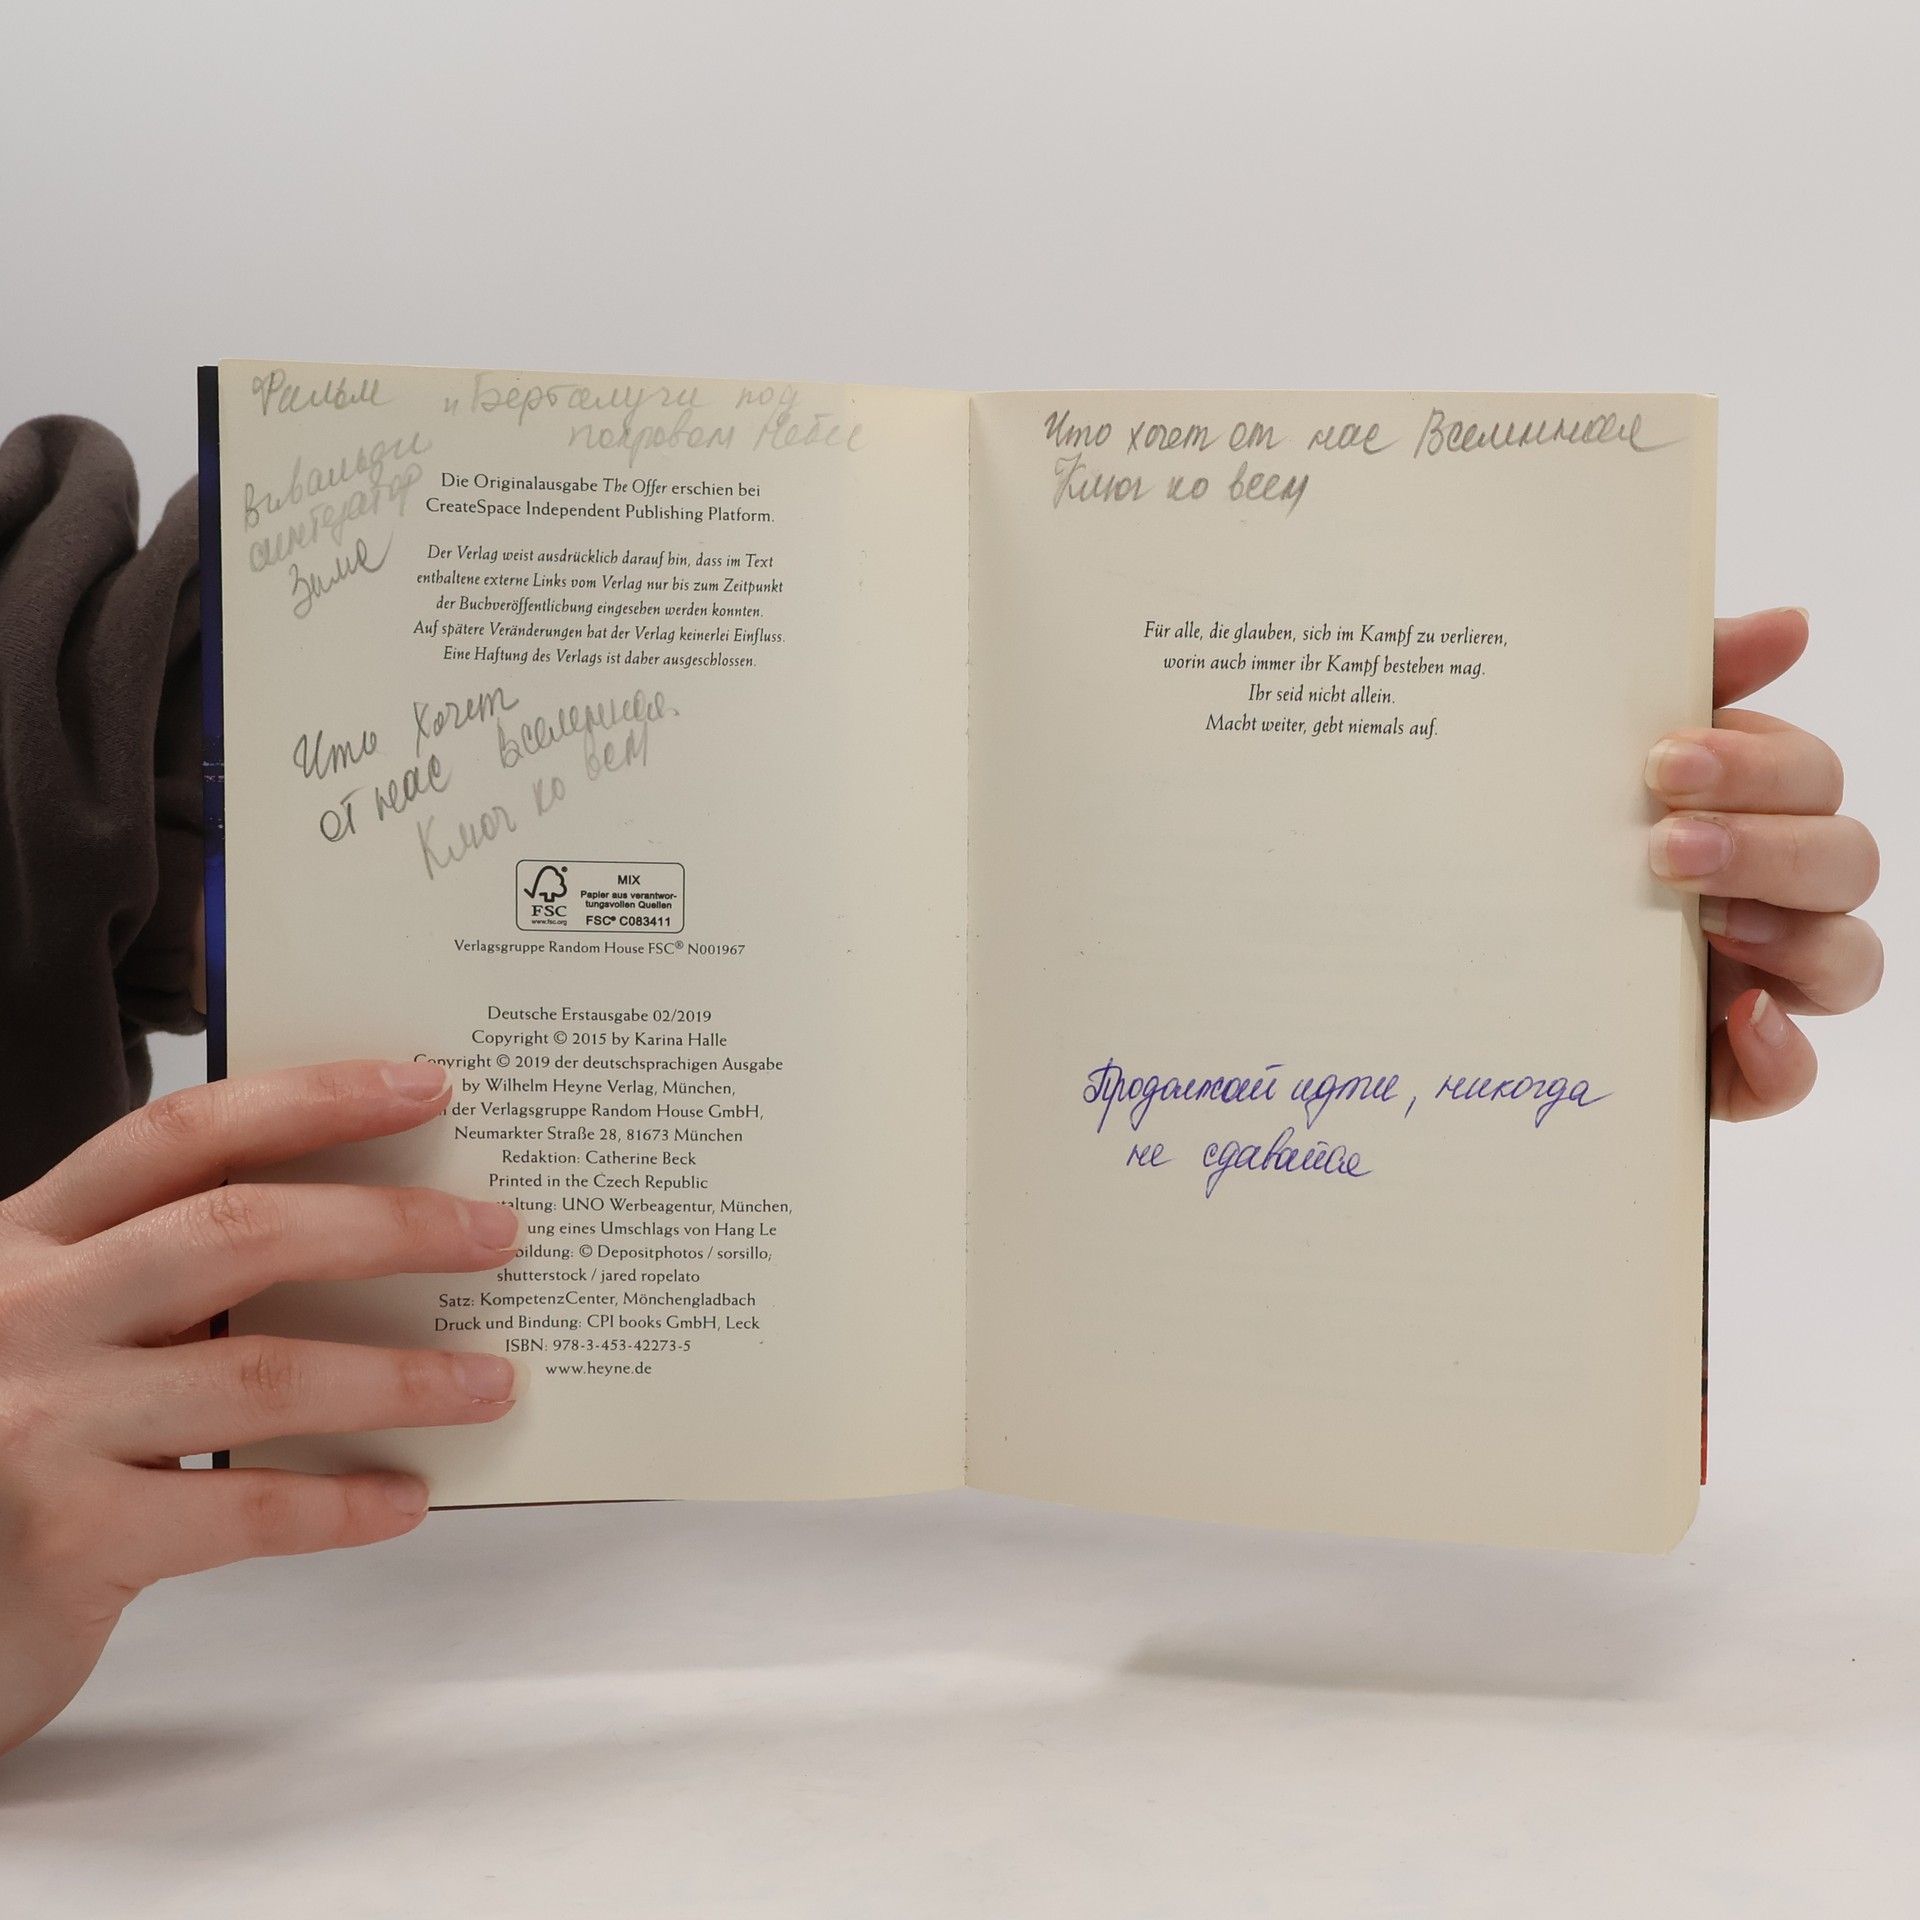 Фильм "Берталучи под
покровом Неба
Вивальди
синтезатор
Зима
Die Originalausgabe The Offer erschien bei
CreateSpace Independent Publishing Platform.
Der Verlag weist ausdrücklich darauf hin, dass im Text
enthaltene externe Links vom Verlag nur bis zum Zeitpunkt
der Buchveröffentlichung eingesehen werden konnten.
Auf spätere Veränderungen hat der Verlag keinerlei Einfluss.
Eine Haftung des Verlags ist daher ausgeschlossen.
Что хочет
от нас Вселенная
Ключ ко всем
MIX
Papier aus verantwor-
tungsvollen Quellen
FSC® C083411
FSC
www.fsc.org
Verlagsgruppe Random House FSC® N001967
Deutsche Erstausgabe 02/2019
Copyright © 2015 by Karina Halle
Copyright © 2019 der deutschsprachigen Ausgabe
by Wilhelm Heyne Verlag, München,
der Verlagsgruppe Random House GmbH,
Neumarkter Straße 28, 81673 München
Redaktion: Catherine Beck
Printed in the Czech Republic
taltung: UNO Werbeagentur, München,
ung eines Umschlags von Hang Le
bildung: © Depositphotos / sorsillo;
shutterstock / jared ropelato
Satz: KompetenzCenter, Mönchengladbach
Druck und Bindung: CPI books GmbH, Leck
ISBN: 978-3-453-42273-5
www.heyne.de
Что хочет от нас Вселенная
Ключ ко всем
Für alle, die glauben, sich im Kampf zu verlieren,
worin auch immer ihr Kampf bestehen mag.
Ihr seid nicht allein.
Macht weiter, gebt niemals auf.
Продолжай идти, никогда
не сдавайся